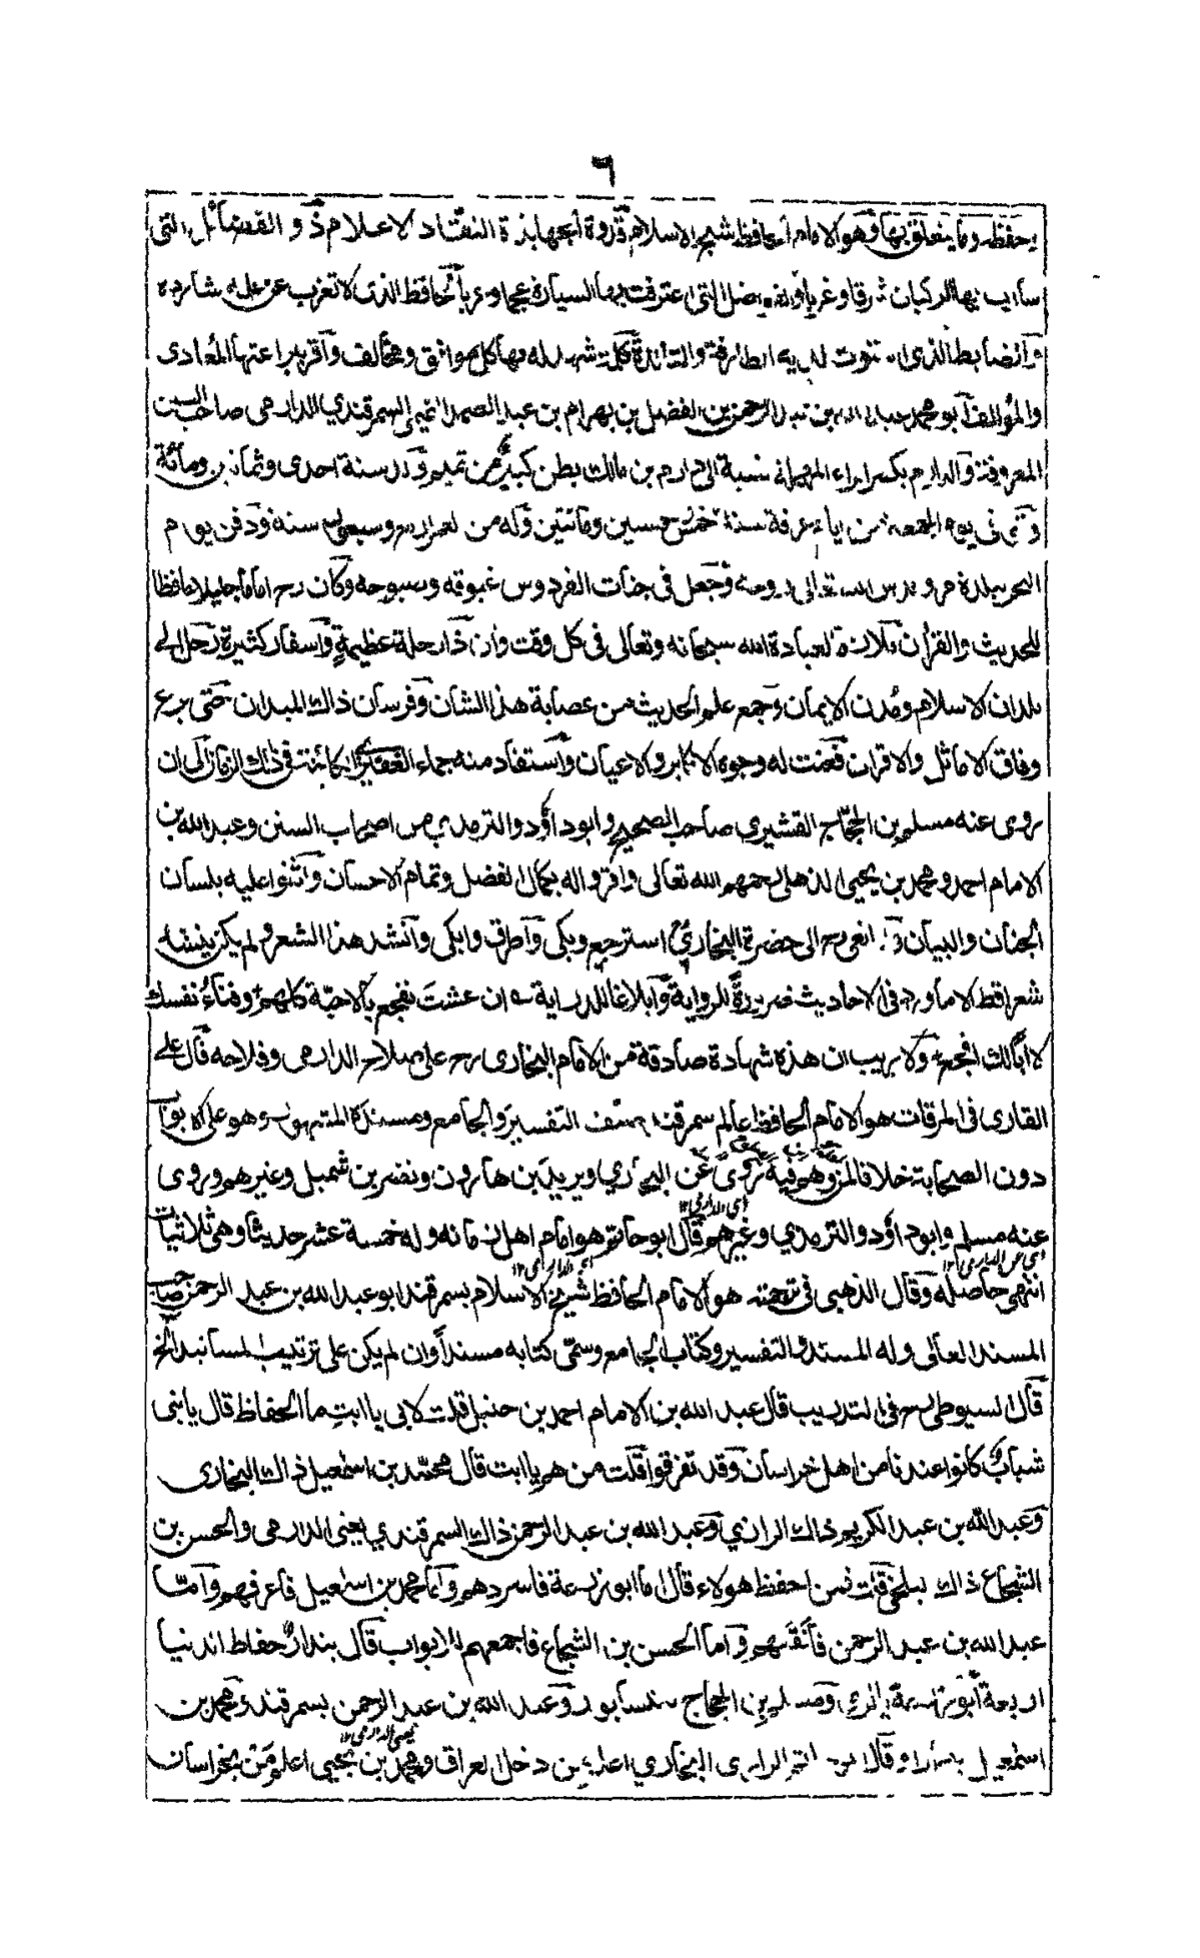 ٦
يحفظه وما يتعلق بها وهو الامام الحافظ شيخ الاسلام قدوة الجهابذة النقّاد الاعلام ذو الفضائل التى
سارت بها الركبان شرقا وغربا والفواضل التى اعترفت بها السيارة عجما وعربا الحافظ الذى لا تعزب عن علمه شارده
والضابط الذى استوت لديه الطارفة والتالدة كلمة شهد له بها كل موافق ومخالف واقر ببراعتها المعادى
والمؤالف ابو محمد عبد الله بن عبد الرحمن بن الفضل بن بهرام بن عبد الصمد التميمى السمرقندي الدارمى صاحب السنن
المعروفة والدارم بكسر الراء المهملة نسبة الى دارم بن مالك بطن كبير من تميم ولد سنة احدى وثمانين ومائة
وتوفى يوم الجمعة من ايام عرفة سنة خمس خمسين ومائتين وله من العمر اربع وسبعون سنة ودفن يوم
النحر ببلدة مرو قدس الله تعالى روحه وجعل فى جنات الفردوس غبوقه وصبوحه وكان رح اماما جليلا حافظا
للحديث والقرأن ملازمة لعبادة الله سبحانه وتعالى فى كل وقت وان ذا رحلة عظيمة واسفار كثيرة رحل الى
بلدان الاسلام ومُدن الايمان وجمع علم الحديث من عصابة هذا الشان وفرسان ذالك الميدان حتى برع
وفاق الاماثل والاقران فعنت له وجوه الاكابر والاعيان واستفاد منه جماء الغفير الكائنة فى ذلك الزمان الى ان
روى عنه مسلم بن الحجّاج القشيري صاحب الصحيح وابو داؤد والترمذي من اصحاب السنن وعبد الله بن
الامام احمد ومحمد بن يحيى الذهلى رحمهم الله تعالى واقروا له بكمال الفضل وتمام الاحسان واثنوا عليه بلسان
الجنان والبيان ولما انعى رح الى حضرة البخاري استرجع وبكى واطرق وابكى وانشد هذا الشعر ولم يكن ينشد
شعرا قط الا ما ورد فى الاحاديث ضرورة للرواية وابلاغا للدراية ؎ ان عشت تفجع بالاحبّة كلهم وفناءُ نفسك
لا ابالك افجع ولا يريب ان هذه شهادة صادقة من الامام البخارى رح على صلاح الدارمى وفلاحه قال على
القارى فى المرقات هو الامام الحافظ عالم سمرقند صنف التفسير والجامع ومسنده المشهور وهو على الابواب
دون الصحابة خلافا لمن وهم فيه روى عن البخاري ويزيد بن هارون ونضر بن شميل وغيرهم وروى
عنه مسلم وابو داؤد والترمذي وغيرهم قال ابو حاتم هو امام اهل زمانه وله خمسة عشر حديثا وهى ثلاثيات
اى الدارمى ١٢
انتهى حاصله وقال الذهبى فى ترجمته هو الامام الحافظ شيخ الاسلام بسمرقند ابو عبد الله بن عبد الرحمن صاحب
المسند العالى وله المسند والتفسير وكتاب الجامع وسمّى كتابه مسنداً وان لم يكن على ترتيب المسانيد الخ
قال السيوطى رح فى التدريب قال عبد الله بن الامام احمد بن حنبل قلت لابى يا ابت ما الحفاظ قال يا بنى
شباب كانوا عندنا من اهل خراسان وقد تفرقوا قلت من هم يا ابت قال محمّد بن اسمٰعيل ذاك البخارى
وعبد الله بن عبد الكريم ذاك الرازي وعبد الله بن عبد الرحمن ذاك السمرقندي يعنى الدارمى والحسن بن
الشجاع ذاك البلخى قلت فمن احفظ هولاء قال اما ابو زرعة فاسردهم واما محمد بن اسمٰعيل فاعرفهم وامّا
عبد الله بن عبد الرحمن فاتقنهم واما الحسن بن الشجاع فاجمعهم للابواب قال بندار حفاظ الدنيا
اربعة ابو زرعة بالري ومسلم بن الحجاج بنيسابور وعبد الله بن عبد الرحمن بسمرقند ومحمد بن
يعنى الدارمى ١٢
اسمٰعيل ببخارا وقال ابو حاتم الرازى البخاري اعلم من دخل العراق ومحمد بن يحيى اعلم من بخراسان